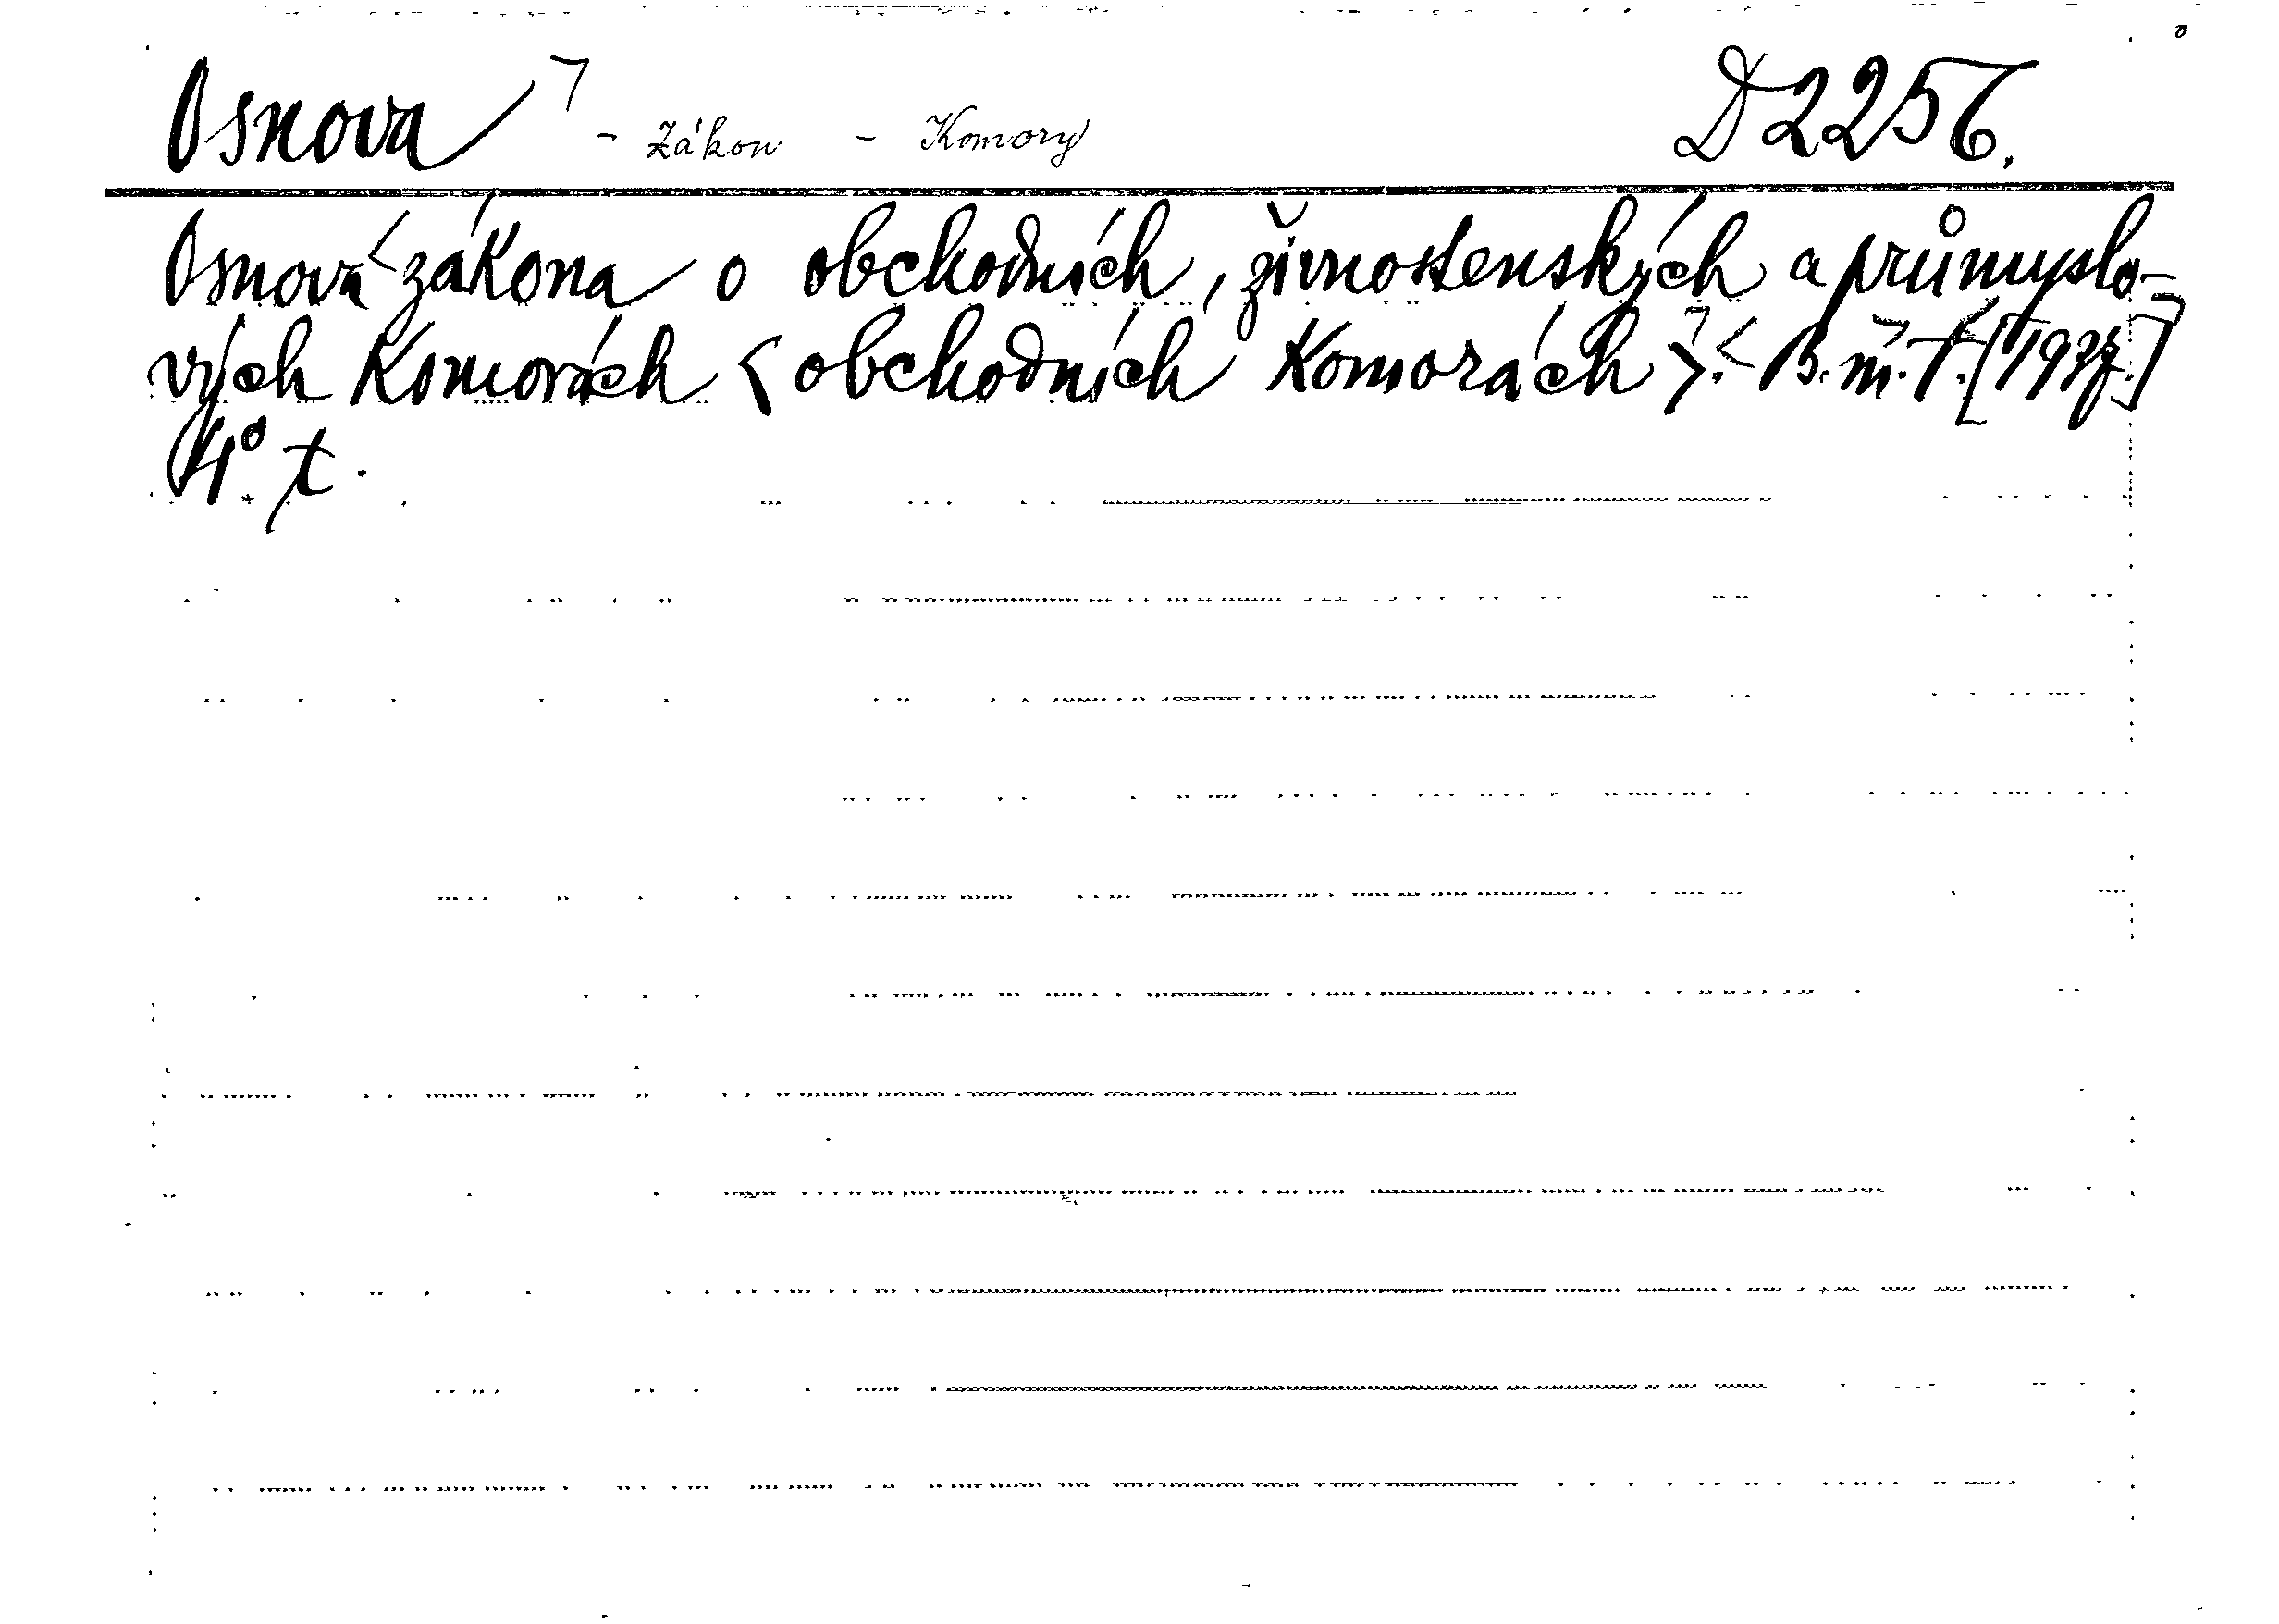 Osnova - zákon - Komory D 2256.
Osnova zákona o obchodních, živnostenských a průmyslo-
vých Komorách < obchodních Komorách >. B. m. t. [1937.]
4° t.